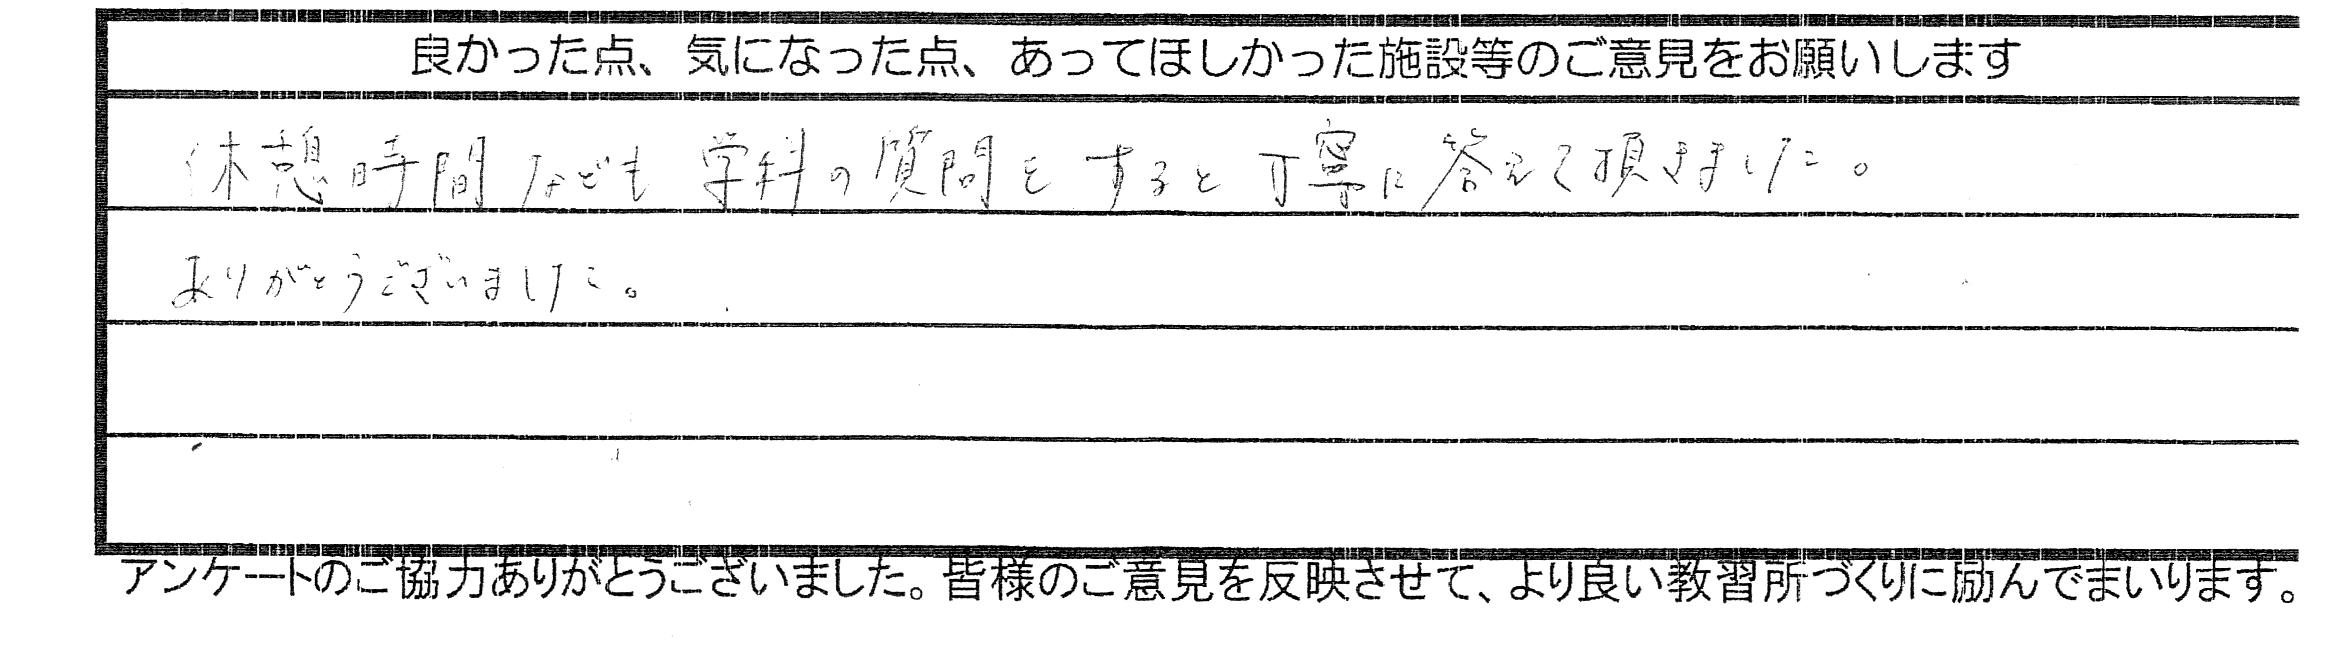 良かった点、気になった点、あってほしかった施設等のご意見をお願いします
休憩時間なども学科の質問をすると丁寧に答えて頂きました。
ありがとうございました。
アンケートのご協力ありがとうございました。皆様のご意見を反映させて、より良い教習所づくりに励んでまいります。